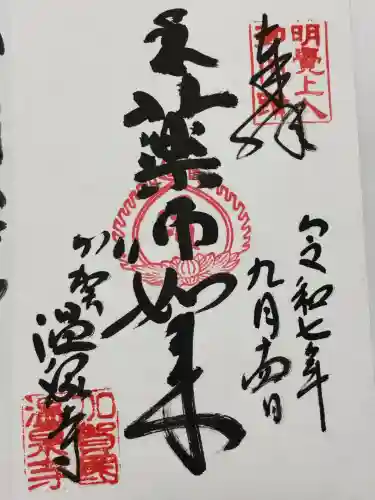 奉拝
明覺上人
令和七年
九月十四日
薬師如来
加賀 温泉寺
加賀國
温泉寺